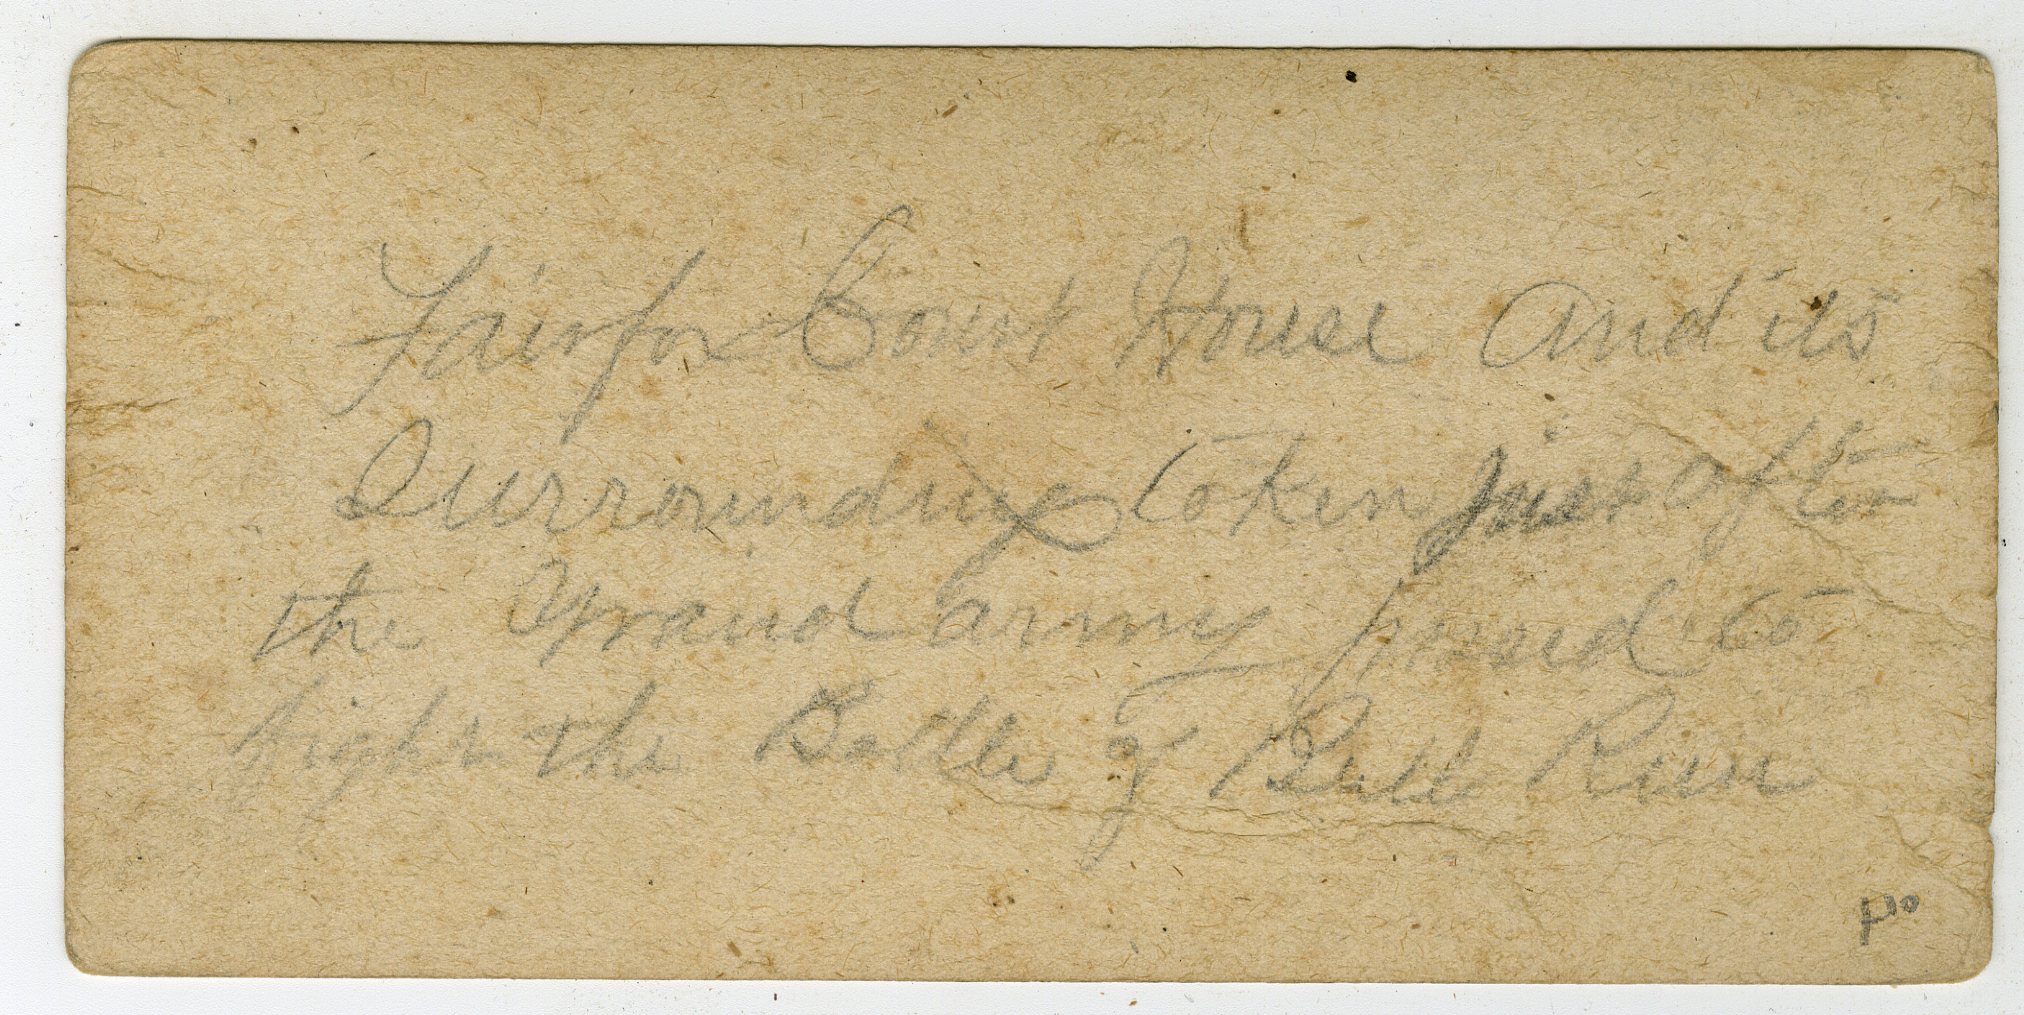 Fairfax Court House and its
Surroundings taken just after
the Grand army passed to
fight the Battle of Bull Run